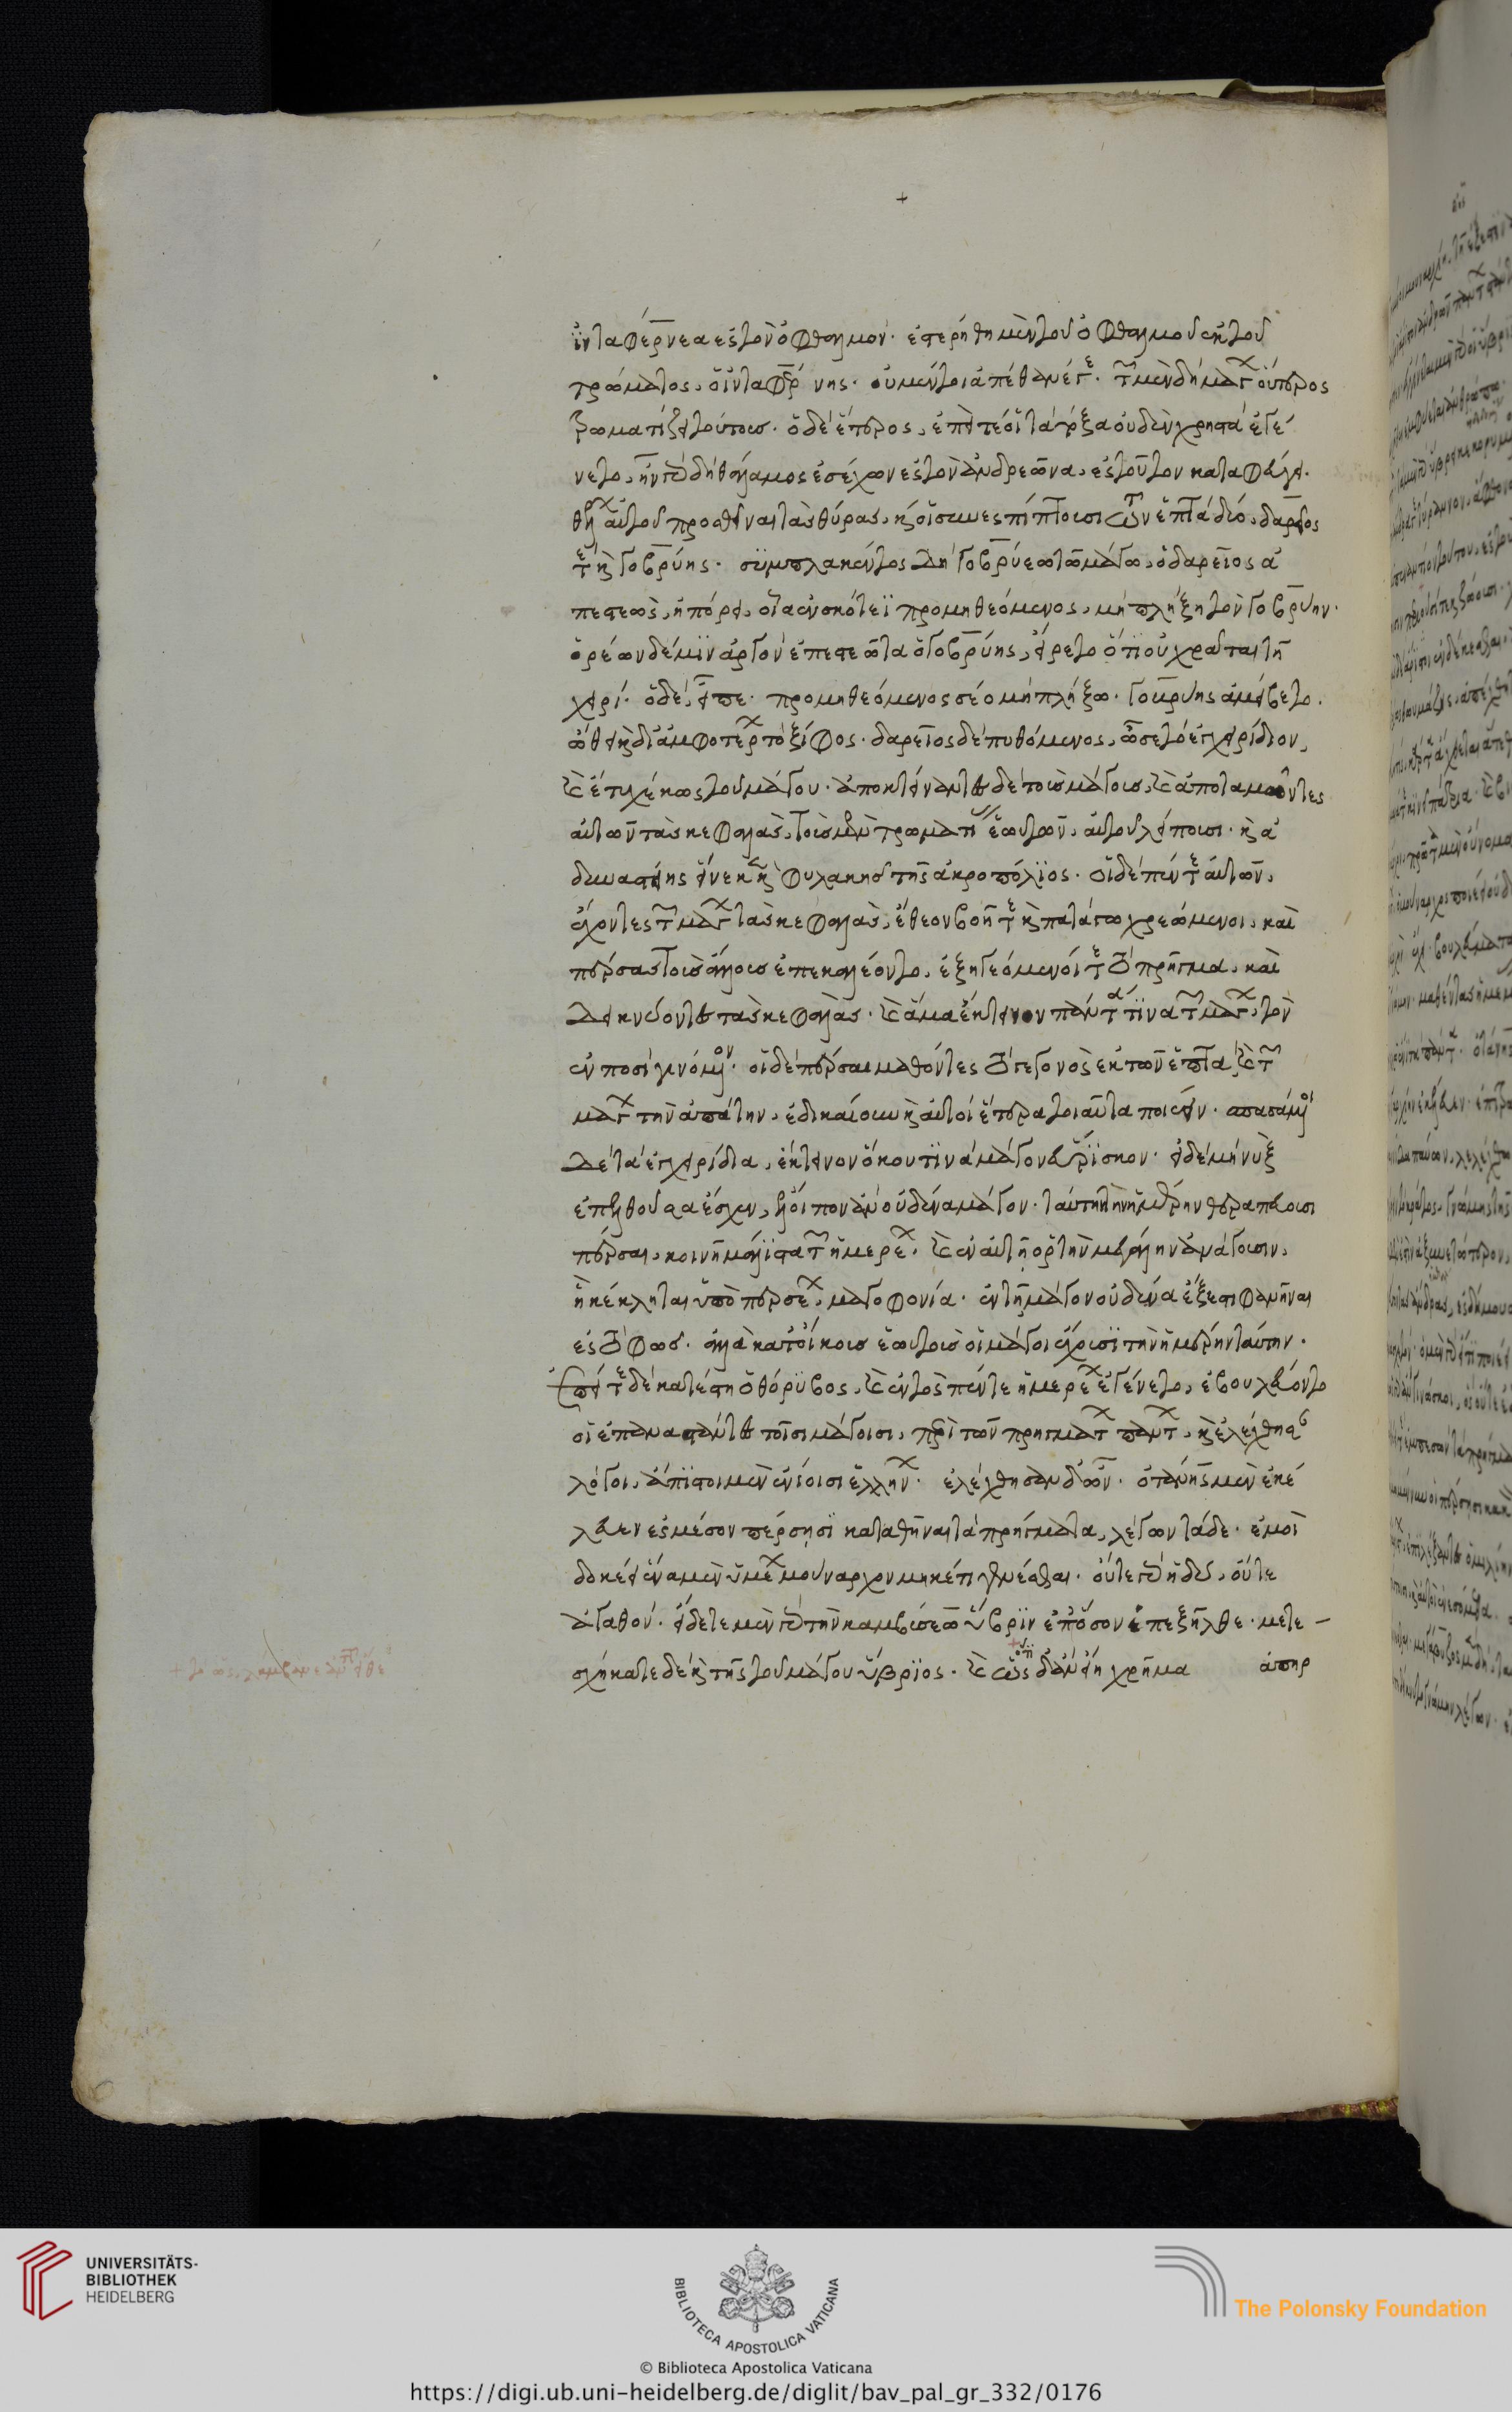 ἰνταφέρνεα ἐς τὸν ὀφθαλμόν· ἐστερήθη μὲν τοῦ ὀφθαλμοῦ ἐκ τοῦ
τρώματος, ὁ ἰνταφέρνης· οὐ μέντοι ἀπέθανέ γε· τῶν μὲν δὴ μάγων οὕτερος
τρωματίζει τούτους· ὁ δὲ ἕτερος, ἐπεί τέ οἱ τὰ τόξα οὐδὲν χρηστὰ ἐγέ
νετο, ἦν γὰρ δὴ θάλαμος ἐσέχων ἐς τὸν ἀνδρεῶνα, ἐς τοῦτον καταφεύγει.
θέλων αὐτοῦ προσθεῖναι τὰς θύρας, καί οἱ συνεσπίπτουσι τῶν ἑπτὰ δύο, δαρεῖος
τε καὶ γοβρύης· συμπλακέντος δὲ γοβρύεω τῷ μάγῳ, ὁ δαρεῖος ἐ
πεστεὼς, ἠπόρει, οἷα ἐν σκότεϊ προμηθεόμενος, μὴ πλήξῃ τὸν γοβρύην.
ὁρέων δέ μιν ἀργὸν ἐπεστεῶτα ὁ γοβρύης, εἴρετο ὅτι οὐ χρᾶται τῇ
χειρί· ὁ δὲ, εἶπε· προμηθεόμενος σέο μὴ πλήξω· γοβρύης ἀμείβετο.
ὤθει καὶ δι' ἀμφοτέρων τὸ ξίφος· δαρεῖος δὲ πυθόμενος, ὦσε τὸ ἐγχειρίδιον,
καὶ ἔτυχέ κως τοῦ μάγου· ἀποκτείναντες δὲ τοὺς μάγους, καὶ ἀποταμόντες
αὐτῶν τὰς κεφαλὰς, τοὺς μὲν τρωματίας ἑωυτῶν, αὐτοῦ λείπουσι· καὶ ἀ
δυνασίης εἵνεκεν καὶ φυλακῆς τῆς ἀκροπόλιος· οἱ δὲ πέντε αὐτῶν,
ἔχοντες τῶν μάγων τὰς κεφαλὰς, ἔθεον βοῇ τε καὶ πατάγῳ χρεώμενοι, καὶ
πέρσας τοὺς ἄλλους ἐπεκαλέοντο, ἐξηγεόμενοί τε τὸ πρῆγμα, καὶ
δεικνύοντες τὰς κεφαλάς· καὶ ἅμα ἔκτεινον πάντα τινὰ τῶν μάγων, τὸν
ἐν ποσὶ γινόμενον· οἱ δὲ πέρσαι μαθόντες τὸ γεγονὸς ἐκ τῶν ἑπτὰ, καὶ τῶν
μάγων τὴν ἀπάτην, ἐδικαίουν καὶ αὐτοὶ ἕτερα τοιαῦτα ποιέειν· σπασάμενοι
δὲ τὰ ἐγχειρίδια, ἔκτεινον ὅκου τινὰ μάγον εὕρισκον· εἰ δὲ μὴ νὺξ
ἐπελθοῦσα ἔσχεν, ἔλιπον ἂν οὐδένα μάγον· ταύτην τὴν ἡμέρην θεραπεύουσι
πέρσαι, κοινῇ μάλιστα τῶν ἡμερέων· καὶ ἐν αὐτῇ ὁρτὴν μεγάλην ἀνάγουσιν,
ἣ κέκληται ὑπὸ περσέων, μαγοφονία· ἐν τῇ μάγον οὐδένα ἔξεστι φανῆναι
ἐς τὸ φῶς· ἀλλὰ κατ' οἴκους ἑωυτοὺς οἱ μάγοι ἔχουσι τὴν ἡμέρην ταύτην.
ἐπεί τε δὲ κατέστη ὁ θόρυβος, καὶ ἐντὸς πέντε ἡμερέων ἐγένετο, ἐβουλεύοντο
οἱ ἐπαναστάντες τοῖσι μάγοισι, περὶ τῶν πρηγμάτων πάντων, καὶ ἐλέχθησαν
λόγοι, ἄπιστοι μὲν ἐνίοισι ἑλλήνων· ἐλέχθησαν δ' ὦν· ὀτάνης μὲν ἐκέ
λευεν ἐς μέσον πέρσῃσι καταθεῖναι τὰ πρήγματα, λέγων τάδε· ἐμοὶ
δοκέει ἕνα μὲν ἡμέων μούναρχον μηκέτι γενέσθαι· οὔτε γὰρ ἡδὺ, οὔτε
ἀγαθόν· εἴδετε μὲν γὰρ τὴν καμβύσεω ὕβριν ἐπ' ὅσον ἐπεξῆλθε· μετε –
σχήκατε δὲ καὶ τῆς τοῦ μάγου ὕβριος· καὶ κῶς δ' ἂν εἴη χρῆμα
UNIVERSITÄTS-
BIBLIOTHEK
HEIDELBERG
BIBLIOTECA APOSTOLICA VATICANA
The Polonsky Foundation
© Biblioteca Apostolica Vaticana
https://digi.ub.uni-heidelberg.de/diglit/bav_pal_gr_332/0176